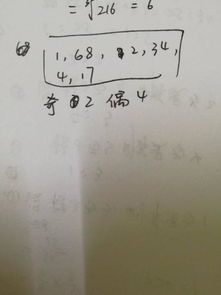 = ∛216 = 6
68
1, 68, 2, 34,
4, 17
奇 2 偶 4